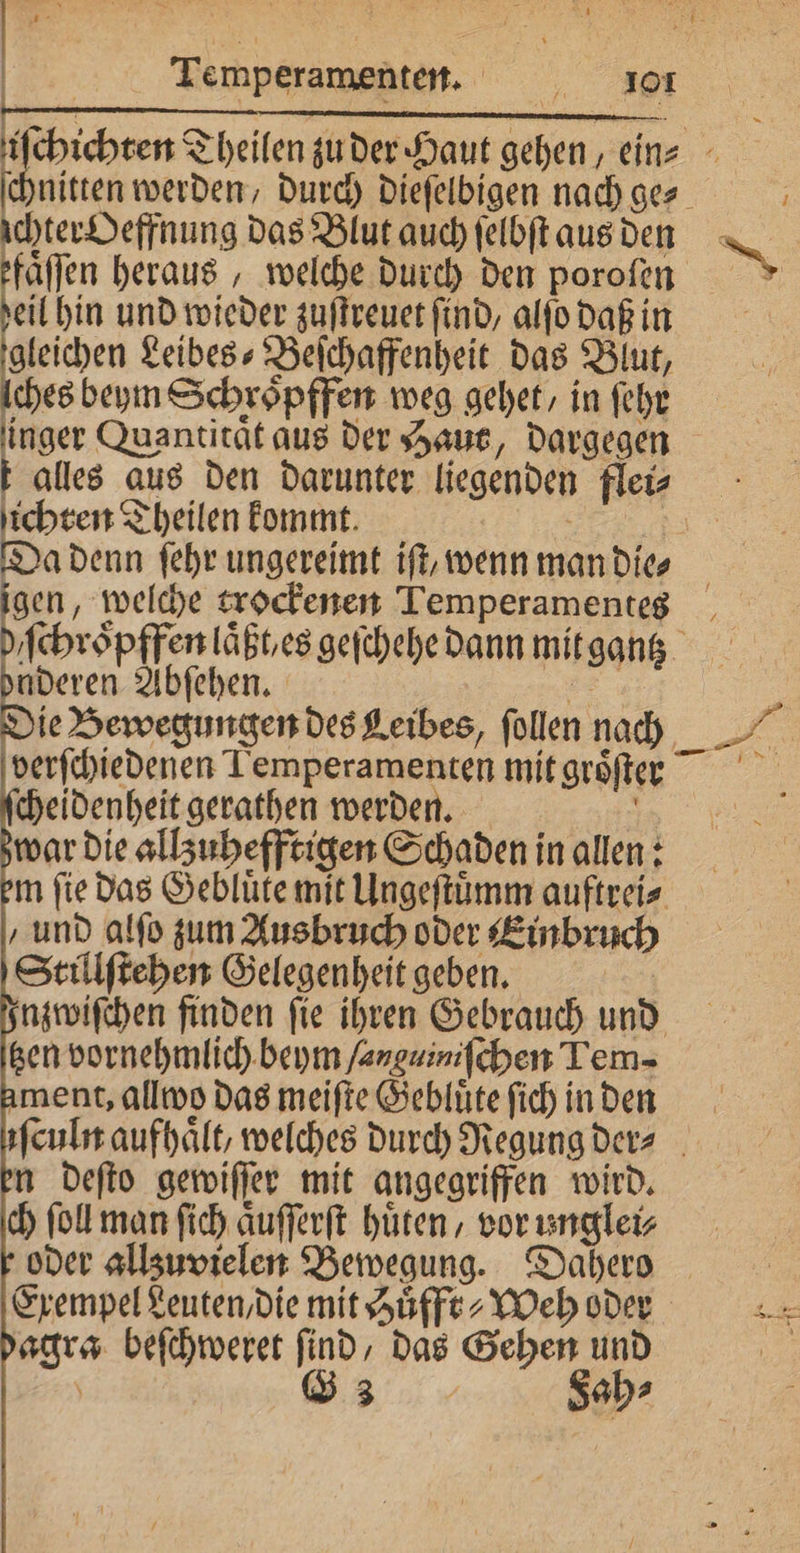 Temperamenten. 101
iſchichten Theilen zu der Haut gehen, ein⸗
ſchnitten werden, durch dieſelbigen nach ge⸗
chter Oeffnung das Blut auch ſelbſt aus den
faͤſſen heraus, welche durch den poroſen
eil hin und wieder zuſtreuet ſind, alſo daß in
gleichen Leibes⸗Beſchaffenheit das Blut,
lches beym Schroͤpffen weg gehet, in ſehr
inger Quantitaͤt aus der Haut, dargegen
t alles aus den darunter liegenden flei⸗
ichten Theilen kommt.
Da denn ſehr ungereimt iſt, wenn man die⸗
igen, welche trockenen Temperamentes
d, ſchroͤpffen laͤßt, es geſchehe dann mit gantz
onderen Abſehen.
Die Bewegungen des Leibes, ſollen nach
verſchiedenen Temperamenten mit groͤſter
ſcheidenheit gerathen werden.
zwar die allzuhefftigen Schaden in allen:
em ſie das Gebluͤte mit Ungeſtuͤmm auftrei⸗
, und alſo zum Ausbruch oder Einbruch
Stillſtehen Gelegenheit geben.
Inzwiſchen finden ſie ihren Gebrauch und
tzen vornehmlich beym ſanguiniſchen Tem-
ament, allwo das meiſte Gebluͤte ſich in den
uſculn aufhaͤlt, welches durch Regung der⸗
en deſto gewiſſer mit angegriffen wird.
ch ſoll man ſich aͤuſſerſt huͤten, vor unglei⸗
r oder allzuvielen Bewegung. Dahero
Exempel Leuten, die mit Huͤfft⸗Weh oder
dagra beſchweret ſind, das Gehen und
G 3 Fah⸗